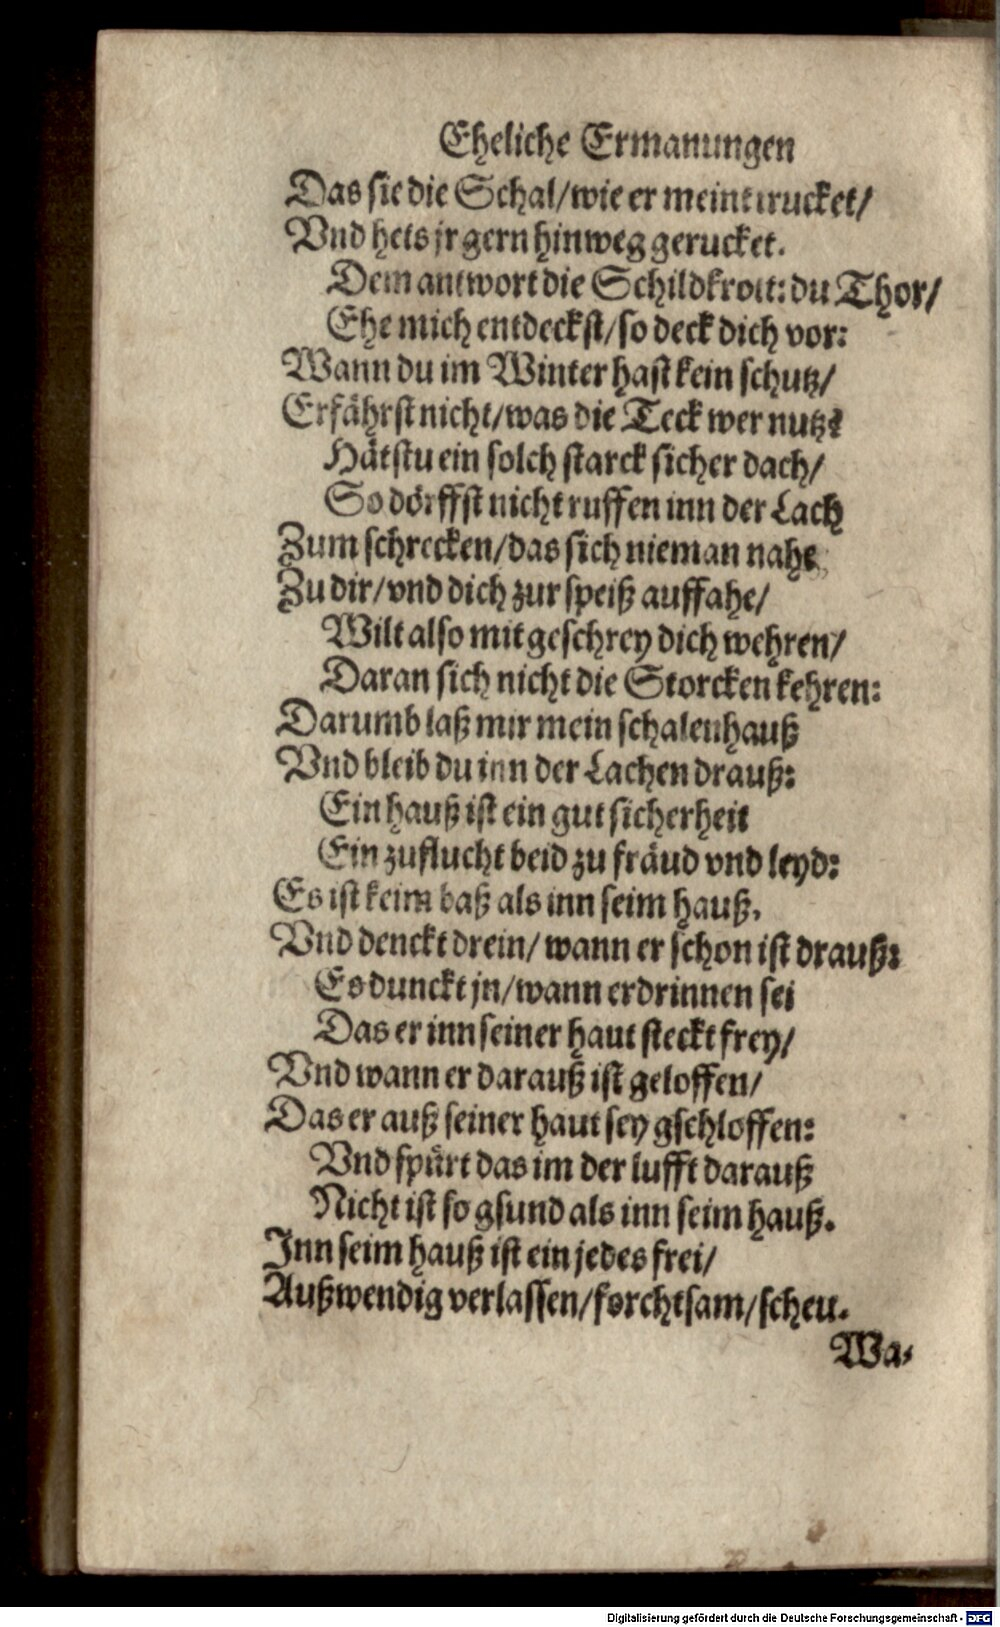 Eheliche Ermanungen
Das sie die Schal/ wie er meint trucket/
Vnd hets jr gern hinweg gerucket.
Dem antwort die Schildkrott: du Thor/
Ehe mich entdeckst/ so deck dich vor:
Wann du im Winter hast kein schutz/
Erfährst nicht/ was die Teck wer nutz?
Hätstu ein solch starck sicher dach/
So dörffst nicht ruffen inn der Lach
Zum schrecken/ das sich nieman nahe
Zu dir/ vnd dich zur speiß auffahe/
Wilt also mit geschrey dich wehren/
Daran sich nicht die Storcken kehren:
Darumb laß mir mein schalenhauß
Vnd bleib du inn der Lachen drauß:
Ein hauß ist ein gut sicherheit
Ein zuflucht beid zu fräud vnd leyd:
Es ist keim baß als inn seim hauß,
Vnd denckt drein/ wann er schon ist drauß:
Es dunckt jn/ wann er drinnen sei
Das er inn seiner haut steckt frey/
Vnd wann er darauß ist geloffen/
Das er auß seiner haut sey gschloffen:
Vnd spürt das im der lufft darauß
Nicht ist so gsund als inn seim hauß.
Inn seim hauß ist ein jedes frei/
Außwendig verlassen/ forchtsam/ scheu.
Wa-
Digitalisierung gefördert durch die Deutsche Forschungsgemeinschaft - DFG